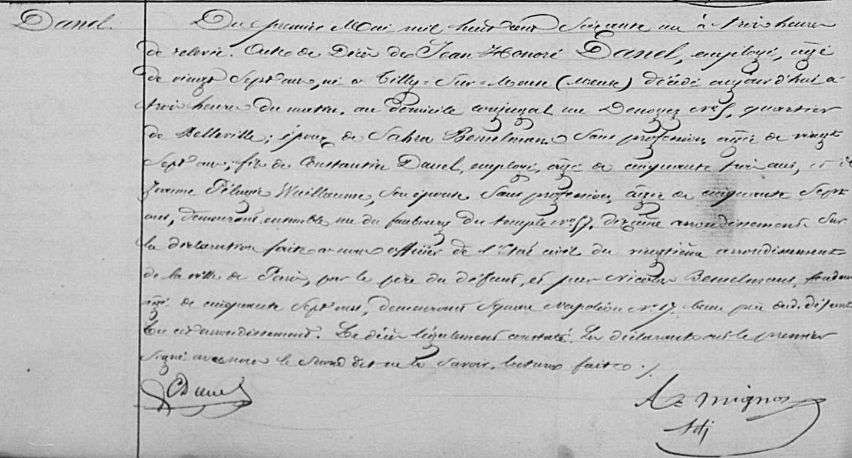 Danel.
Du premier Mai mil huit cent soixante un à trois heures
de relevée. Acte de Décès de Jean Honoré Danel, employé, âgé
de vingt Sept ans, né à Tilly-Sur-Meuse (Meuse) décédé aujourd'hui à
trois heures du matin, au domicile conjugal rue Denoyez n° 5, quartier
de Belleville; époux de Sahra Bonnelmans Sans profession, âgée de vingt
Sept ans; fils de Constantin Danel, employé, âgé de cinquante trois ans, et de
Jeanne Wuillaume, Son épouse Sans profession, âgée de cinquante Sept
ans, demeurant ensemble rue du faubourg du temple n° 57. dixième arrondissement. Sur
la déclaration faite à nous officier de l'Etat civil du vingtième arrondissement
de la ville de Paris, par le père du défunt, et par Nicolas
âgé de cinquante Sept ans, demeurant Square Napoléon n° 17. beau père dud. défunt
En cet arrondissement. Le décès légalement constaté. Les déclarants ont le premier
Signé avec nous le Second dit ne le Savoir, lecture faite ./.
CDanel
Az mignos
Adj